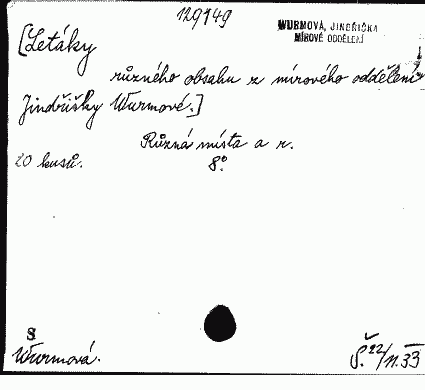 129149
WURMOVÁ, JINDŘIŠKA
MÍROVÉ ODDĚLENÍ
[Letáky
různého obsahu z mírového oddělení
Jindřišky Wurmové.]
Různá místa a r.
20 kusů. 8°
S
Wurmová.
Š. 22/11.33